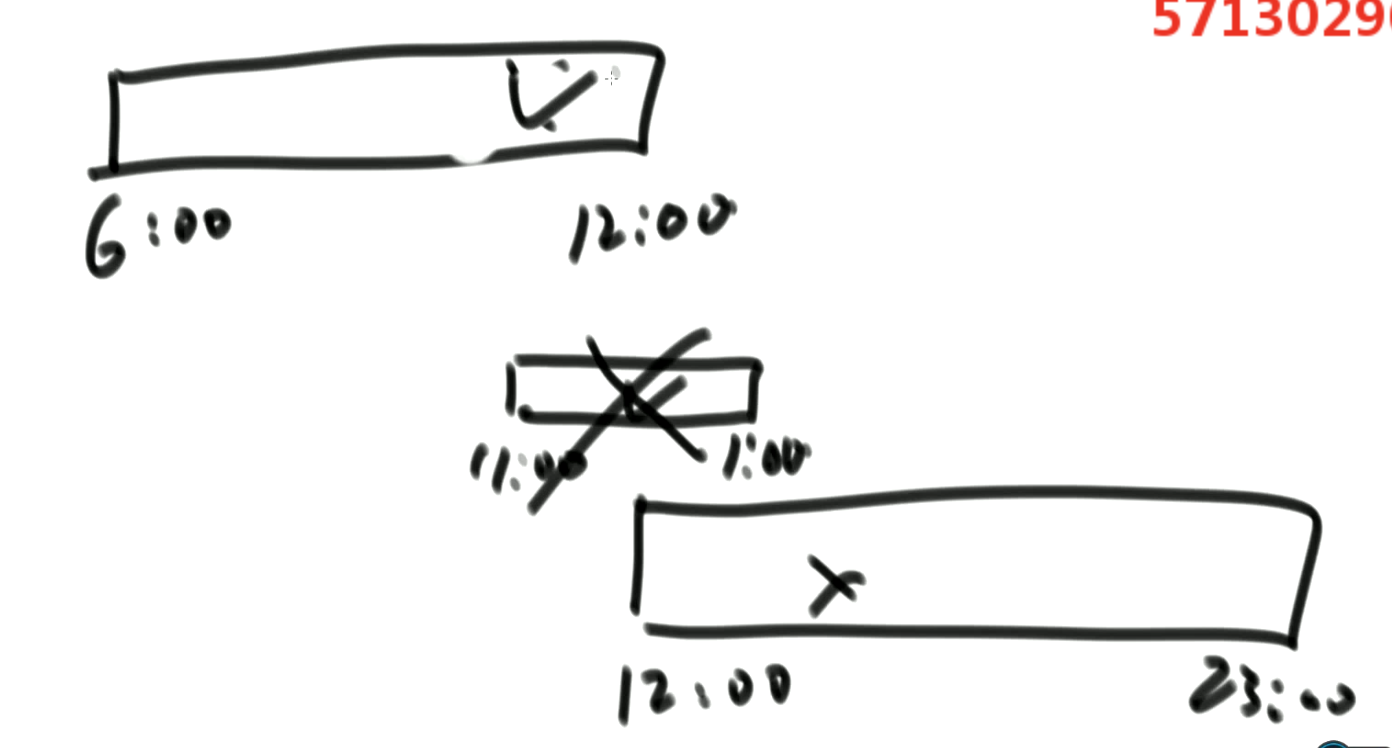 5713029
6:00
12:00
11:00
1:00
12:00
23:00